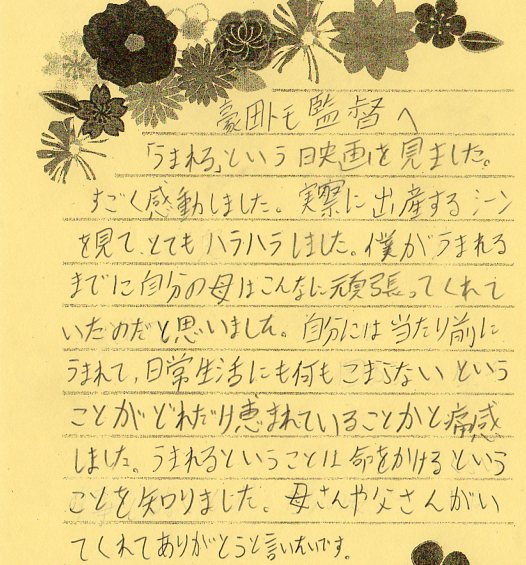 豪田トモ監督へ
「うまれる」という映画を見ました。
すごく感動しました。実際に出産するシーン
を見てとてもハラハラしました。僕がうまれる
までに自分の母はこんなに頑張ってくれて
いたのだと思いました。自分には当たり前に
うまれて、日常生活にも何もこまらないという
ことがどれだけ恵まれていることかと痛感
しました。うまれるということは命をかけるという
ことを知りました。母さんや父さんがい
てくれてありがとうと言いたいです。